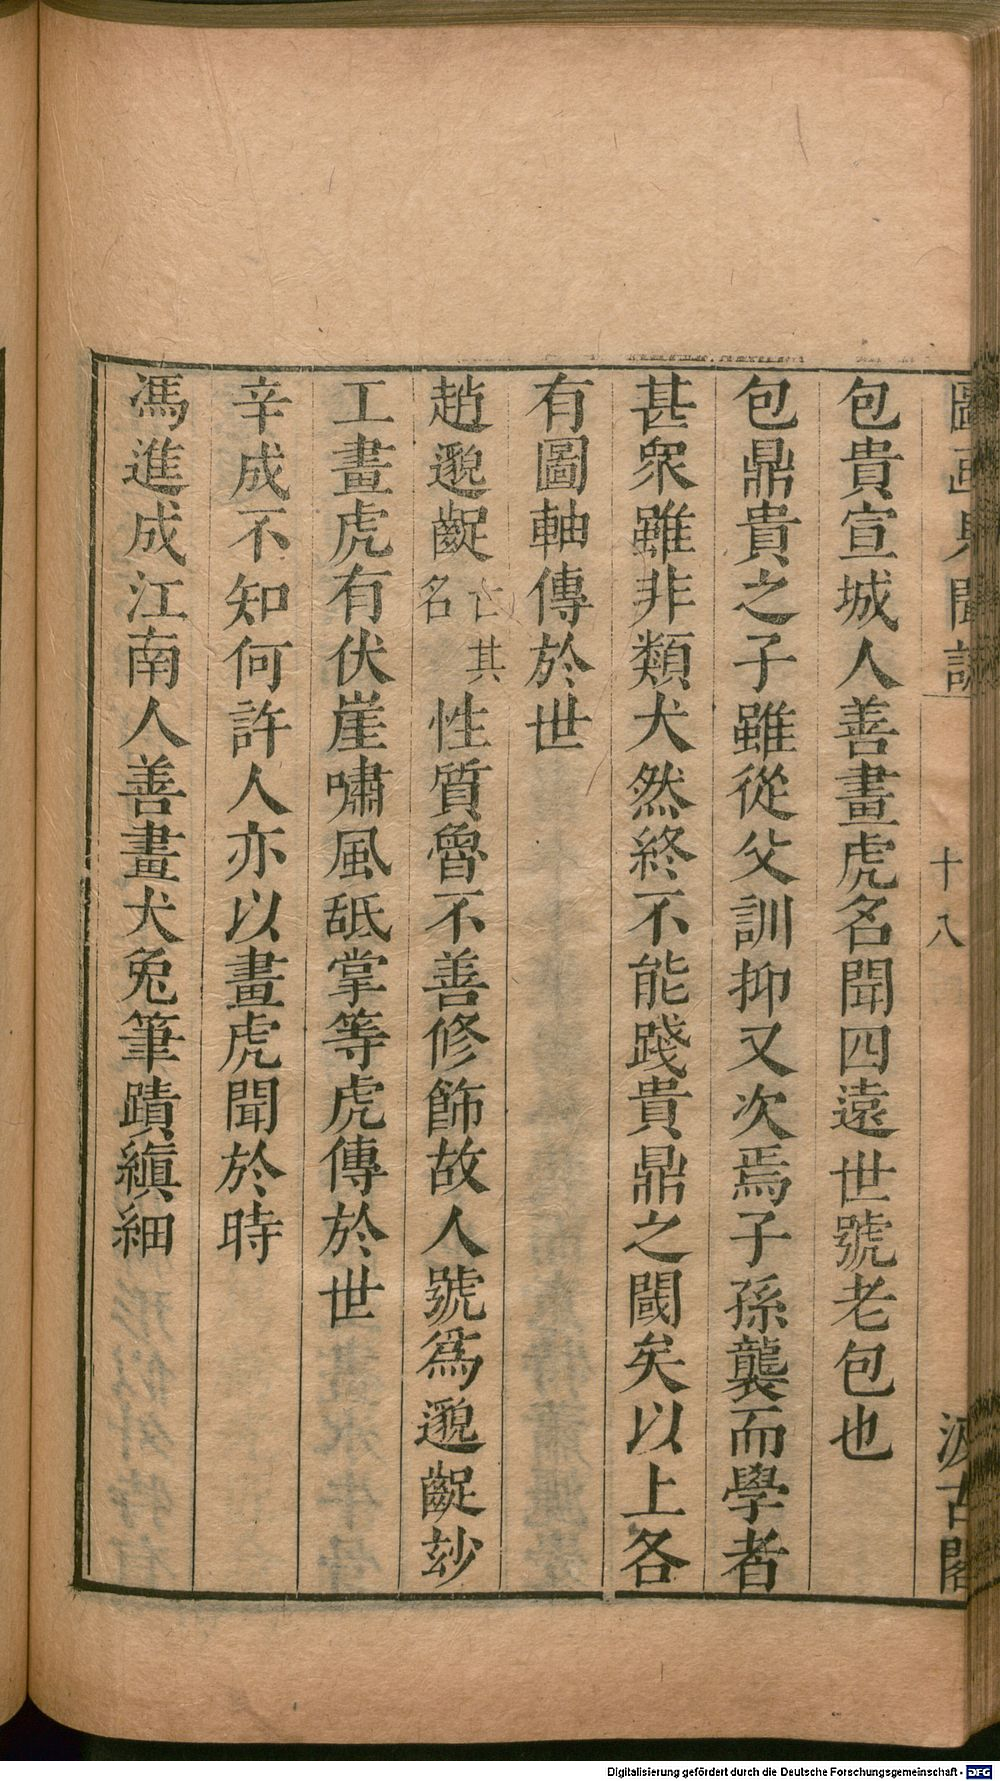 圖畫見聞誌 十八 汲古閣
包貴宣城人善畫虎名聞四遠世號老包也
包鼎貴之子雖從父訓抑又次焉子孫襲而學者
甚衆雖非類犬然終不能踐貴鼎之閾矣以上各
有圖軸傳於世
趙邈齪亡其名性質魯不善修飾故人號為邈齪玅
工畫虎有伏崖嘯風舐掌等虎傳於世
辛成不知何許人亦以畫虎聞於時
馮進成江南人善畫犬兔筆蹟縝細
Digitalisierung gefördert durch die Deutsche Forschungsgemeinschaft - DFG